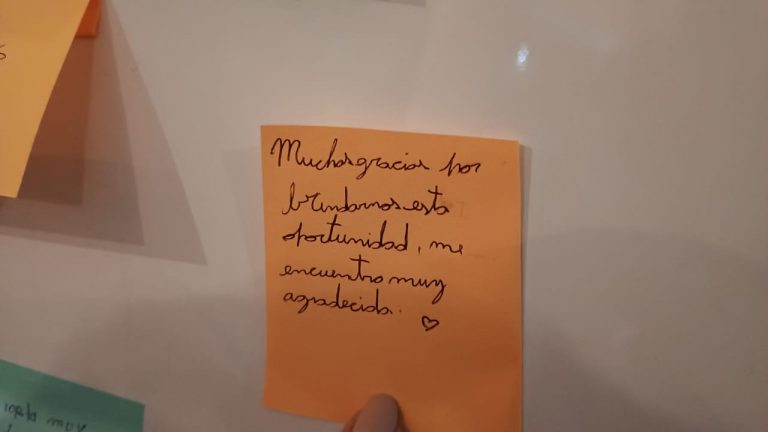 Muchas gracias por
brindarnos esta
oportunidad, me
encuentro muy
agradecida. ♡
muy